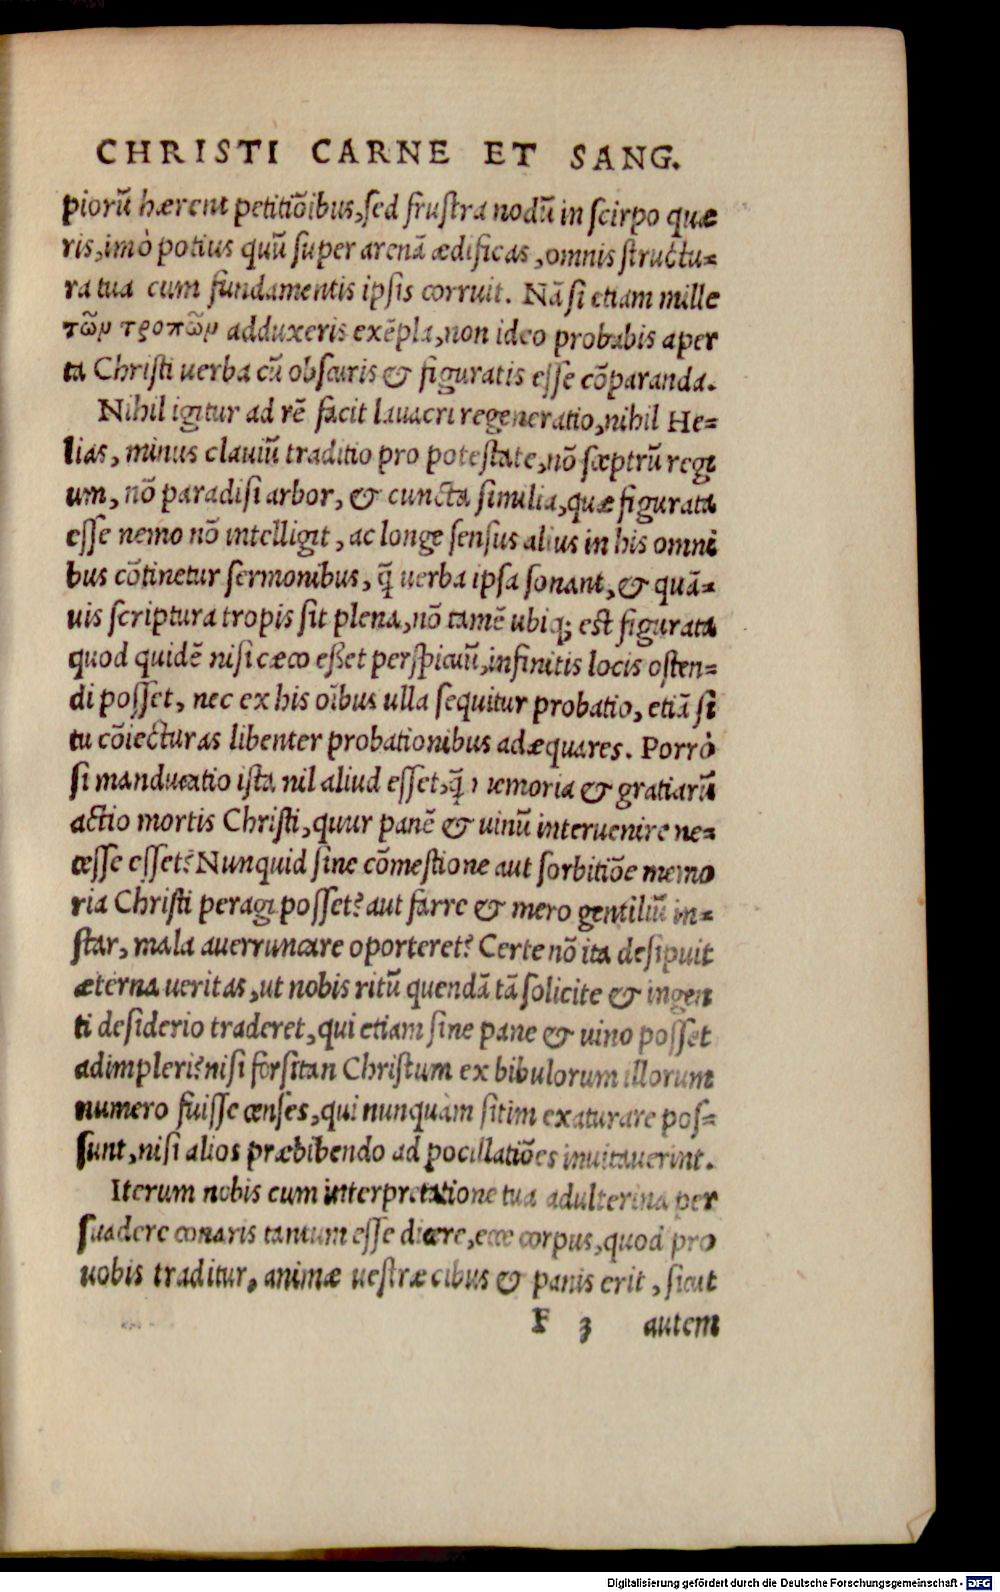 CHRISTI CARNE ET SANG.
piorū hærent petitiõibus, sed frustra nodū in scirpo quæ
ris, imò potius quū super arenā ædificas, omnis structu=
ra tua cum fundamentis ipsis corruit. Nā si etiam mille
τῶν τροπῶν adduxeris exẽpla, non ideo probabis aper
ta Christi uerba cū obscuris & figuratis esse cõparanda.
Nihil igitur ad rẽ facit lauacri regeneratio, nihil He=
lias, minus clauiū traditio pro potestate, nõ sceptrū regi
um, nõ paradisi arbor, & cuncta similia, quæ figurata
esse nemo nõ intelligit, ac longe sensus alius in his omni
bus cõtinetur sermonibus, q̃ uerba ipsa sonant, & quã=
uis scriptura tropis sit plena, nõ tamẽ ubiq; est figurata
quod quidẽ nisi cæco eßet perspicuū, infinitis locis osten=
di posset, nec ex his oĩbus ulla sequitur probatio, etiã si
tu cõiecturas libenter probationibus adæquares. Porrò
si manducatio ista nil aliud esset, q̃ memoria & gratiarū
actio mortis Christi, quur panẽ & uinū interuenire ne=
cesse esset? Nunquid sine cõmestione aut sorbitiõe memo
ria Christi peragi posset? aut farre & mero gentiliū in=
star, mala auerruncare oporteret? Certe nõ ita desipuit
æterna ueritas, ut nobis ritū quendã tã solicite & ingen
ti desiderio traderet, qui etiam sine pane & uino posset
adimpleri? nisi forsitan Christum ex bibulorum illorum
numero fuisse censes, qui nunquàm sitim exaturare pos=
sunt, nisi alios præbibendo ad pocillatiões inuitauerint.
Iterum nobis cum interpretatione tua adulterina per
suadere conaris tantum esse dicere, ecce corpus, quod pro
uobis traditur, animæ uestræ cibus & panis erit, sicut
F 3 autem
Digitalisierung gefördert durch die Deutsche Forschungsgemeinschaft - DFG